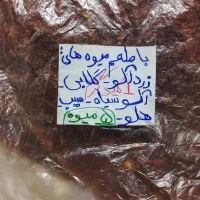 با طعم میوه های:
زردآلو - گلابی
آلو سیاه - سیب
هلو - ۵ میوه